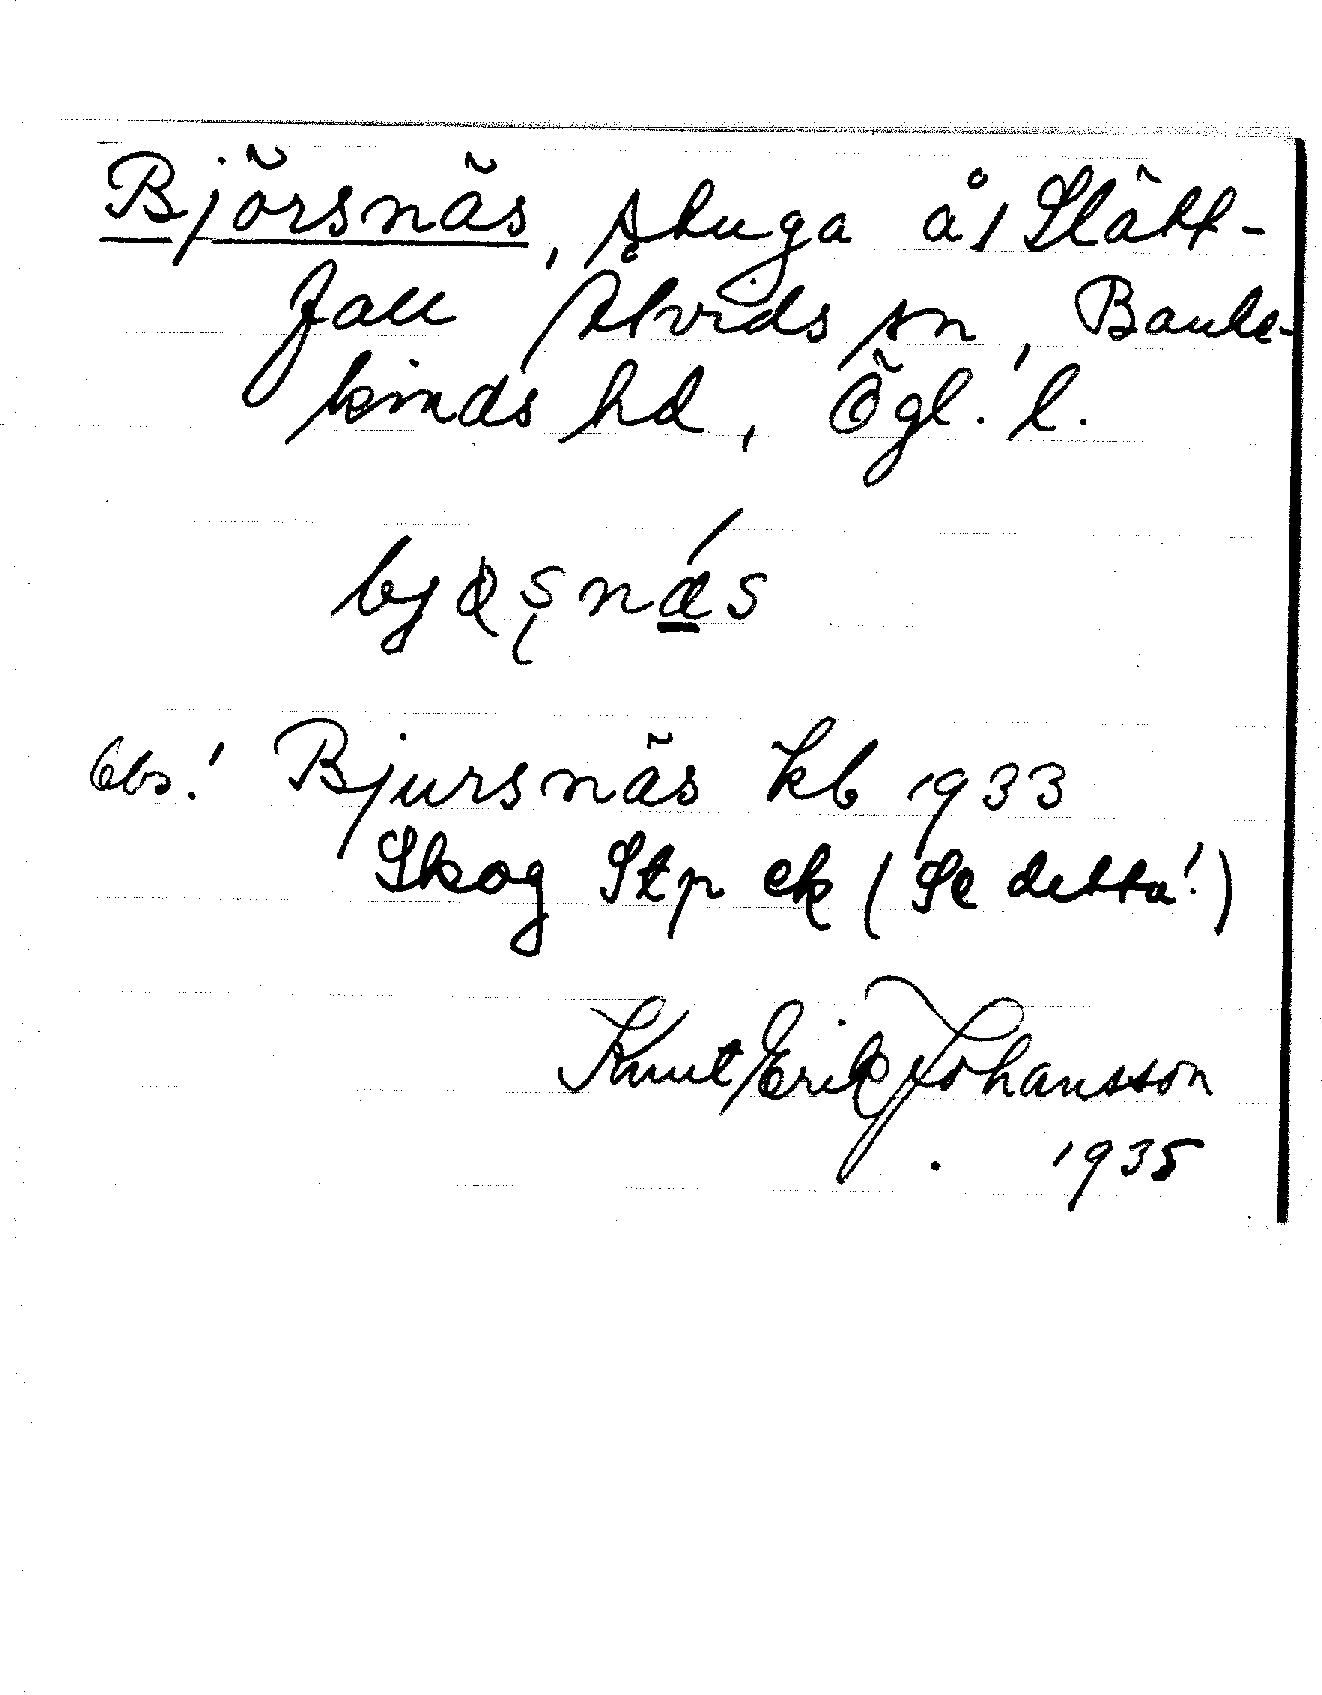 Björsnäs, stuga å, Slätt-
fall Åtvids sn, Banke-
kinds hd, Ögl. l.
Obs! Bjursnäs kb 1933
Skog Stp ek (Se detta!)
Knut Erik Johansson
1935